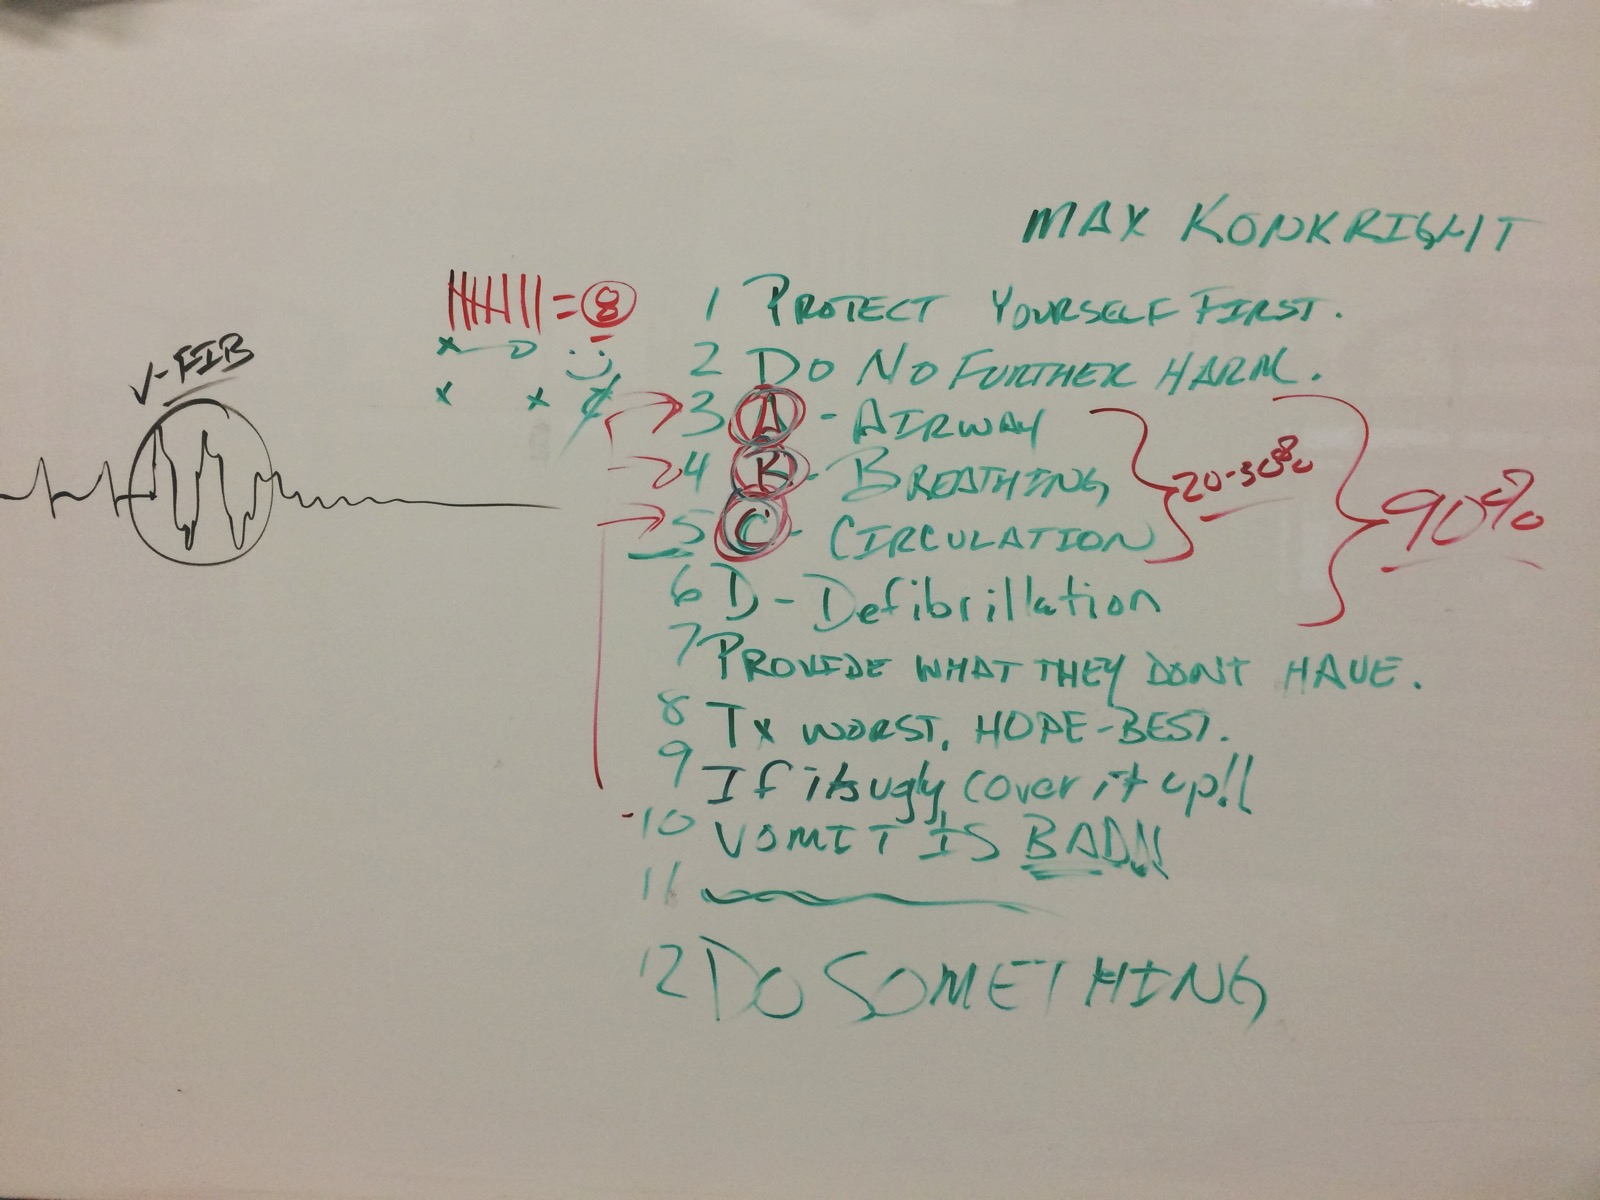 MAX KONKRIGHT
= 8
1 PROTECT YOURSELF FIRST.
2 DO NO FURTHER HARM.
3 A - AIRWAY
4 B - BREATHING
20-30%
90%
5 C - CIRCULATION
6 D - Defibrillation
7 PROVIDE WHAT THEY DON'T HAVE.
8 Tx WORST, HOPE-BEST.
9 If its ugly cover it up!!
10 VOMIT IS BAD!!
11
12 DO SOMETHING
V-FIB